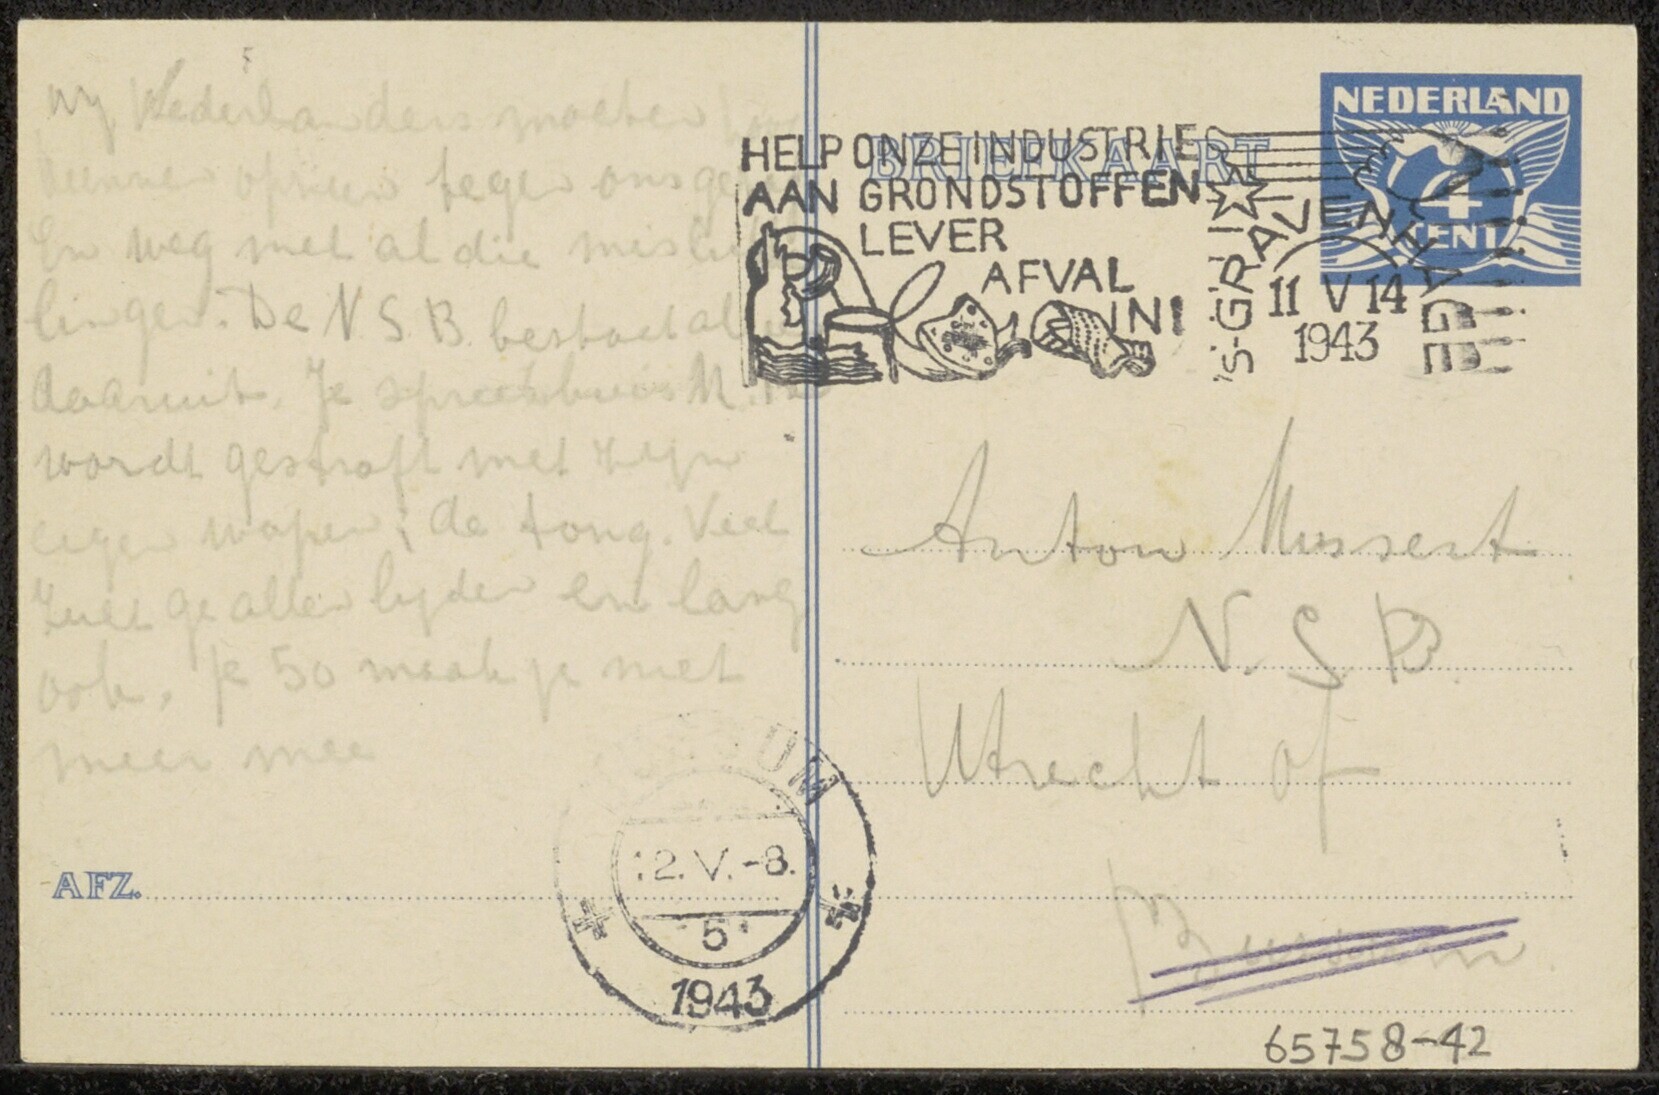 Wij Nederlanders moeten
kunnen opzien tegen ons
En weg met al die misluk
lingen. De N S B bestaat al
daaruit. Je spreekbuis M.
wordt gestraft met zijn
eigen wapen; de tong. Veel
zult ge allen lyden en lang
ook. Je 50 maak je niet
meer mee
AFZ.
BRIEFKAART
HELP ONZE INDUSTRIE
AAN GRONDSTOFFEN
LEVER
AFVAL
IN!
'S-GRAVENHAGE
11 V 14
1943
NEDERLAND
4
CENT
Anton Mussert
N. S. B.
Utrecht of
Bussum
UM
2.V.-8.
5
1943
65758-42